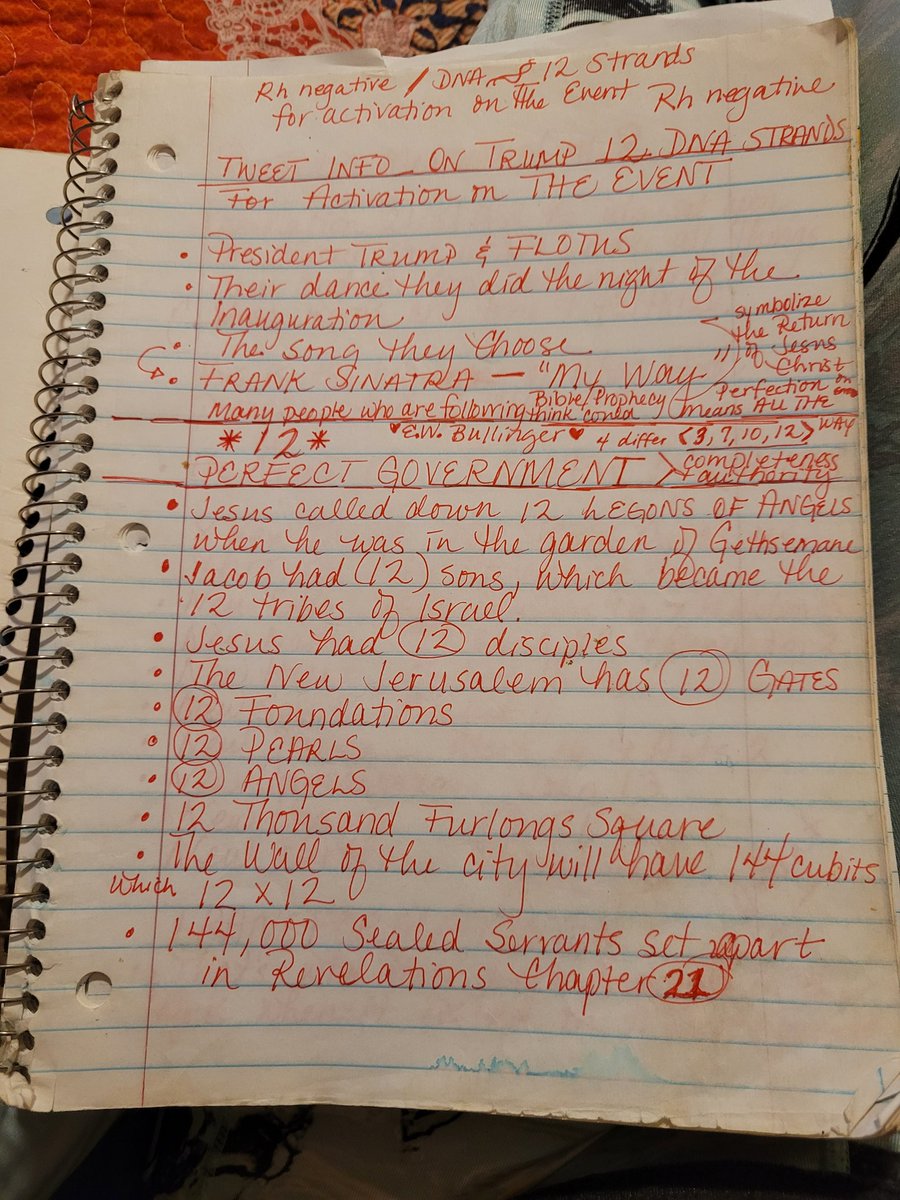 Rh negative / DNA of 12 Strands
for activation on the Event Rh negative
TWEET INFO ON TRUMP 12 DNA STRANDS
For Activation on THE EVENT
• President TRUMP & FLOTUS
• Their dance they did the night of the
Inauguration
• The Song they Choose
• FRANK SINATRA — "My Way"
symbolize
the Return
of Jesus
Christ
Many people who are following Bible/Prophecy
think coned
Perfection on
means ALL THE
WAY
*12* ♥E.W. Bullinger♥ 4 differ <3, 7, 10, 12>
PERFECT GOVERNMENT > completeness
+ authority
• Jesus called down 12 LEGONS OF ANGELS
when he was in the garden of Gethsemane
• Jacob had (12) sons, which became the
12 tribes of Israel.
• Jesus had 12 disciples
• The New Jerusalem has 12 GATES
• 12 Foundations
• 12 PEARLS
• 12 ANGELS
• 12 Thousand Furlongs Square
• The Wall of the city will have 144 cubits
which 12 x 12
• 144,000 Sealed Servants set apart
in Revelations Chapter 21